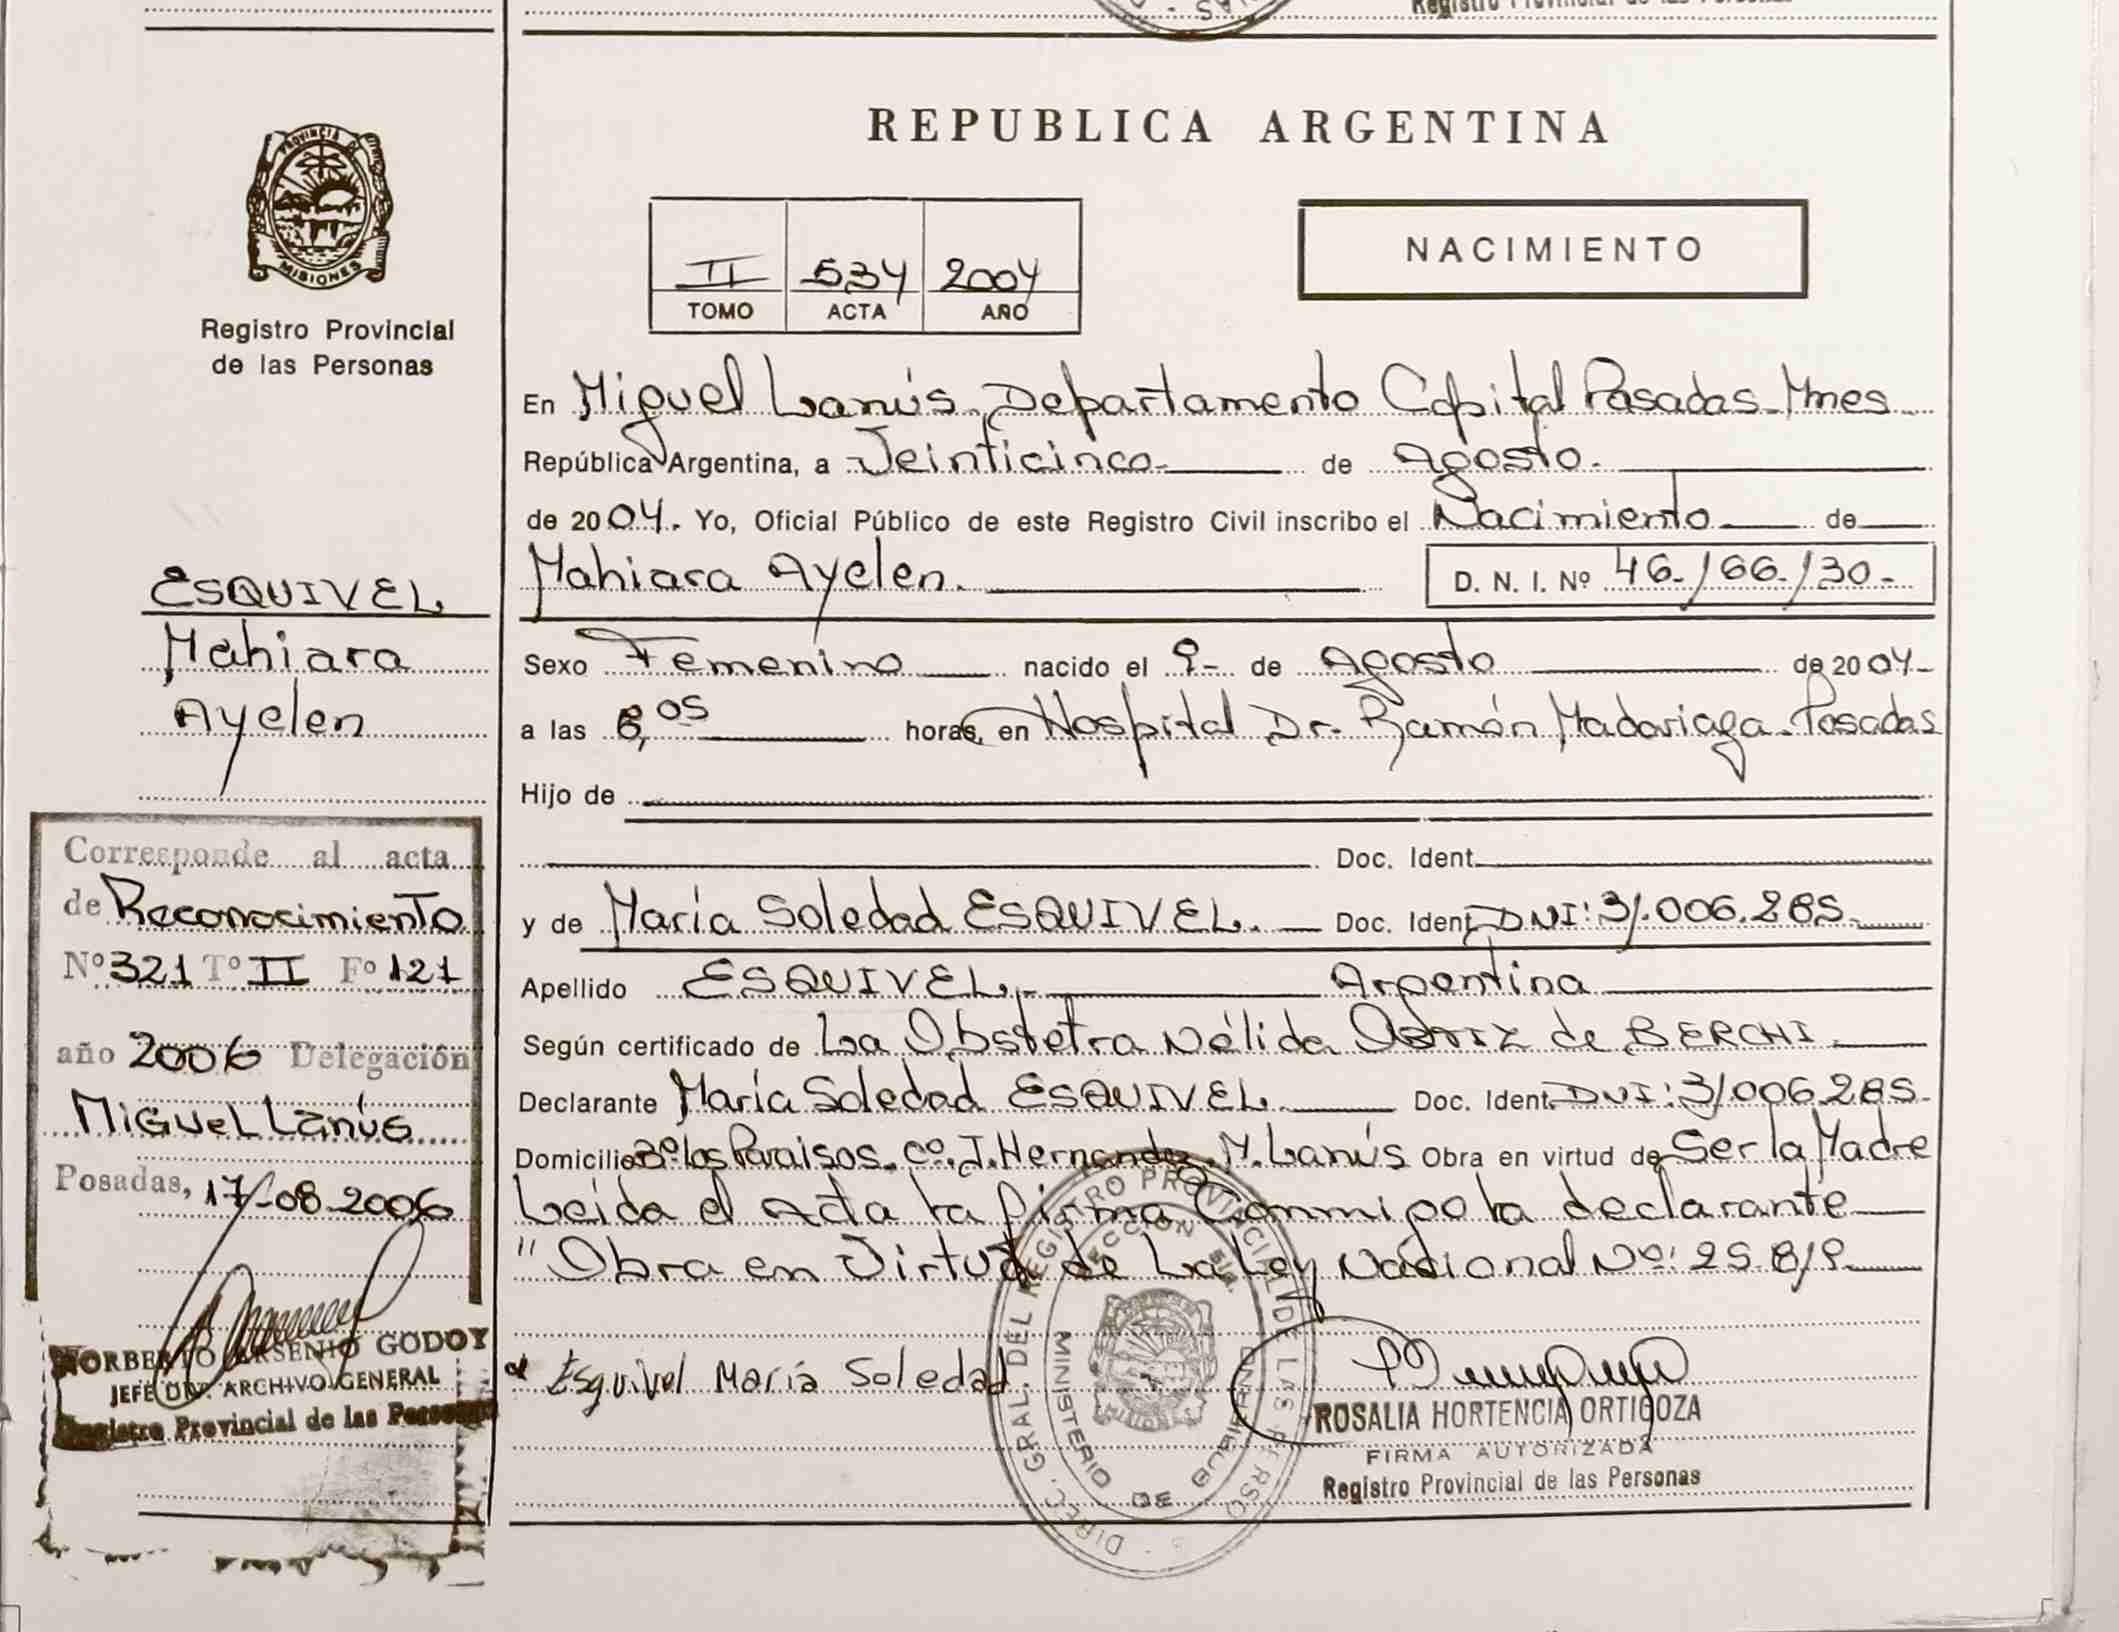 Registro Provincial de las Personas
REPUBLICA ARGENTINA
PROVINCIA DE
MISIONES
Registro Provincial
de las Personas
II 534 2004
TOMO ACTA AÑO
NACIMIENTO
En Miguel Lanús. Departamento Capital Posadas-Mnes
República Argentina, a Veinticinco de Agosto.
de 2004. Yo, Oficial Público de este Registro Civil inscribo el Nacimiento de
Mahiara Ayelen. D. N. I. Nº 46./66./30.-
Sexo Femenino nacido el 9- de Agosto de 2004-
a las 8,05 horas, en Hospital Dr. Ramón Madariaga-Posadas
Hijo de
Doc. Ident.
y de María Soledad ESQUIVEL.- Doc. Ident. DNI: 31.006.285.-
Apellido ESQUIVEL.- Argentina
Según certificado de La Obstetra Nélida de BERCHI.
Declarante María Soledad ESQUIVEL. Doc. Ident. DNI: 31.006.285.-
Domicilio Bº los Paraisos. Cº. J. Hernandez. M. Lanús Obra en virtud de Ser la Madre
Leída el Acta la firma Conmigo la declarante
"Obra en Virtud de La Ley Nacional Nº: 25.819.
Esquivel María Soledad
ROSALIA HORTENCIA ORTIGOZA
FIRMA AUTORIZADA
Registro Provincial de las Personas
DIREC. GRAL. DEL REGISTRO PROVINCIAL DE LAS PERSO
MINISTERIO DE
ESQUIVEL
Mahiara
Ayelen
Corresponde al acta
de Reconocimiento
Nº 321 Tº II Fº 121
año 2006 Delegación
MIGUEL Lanús
Posadas, 17-08-2006
NORBERTO ARSENIO GODOY
JEFE DPT. ARCHIVO GENERAL
Registro Provincial de las Personas